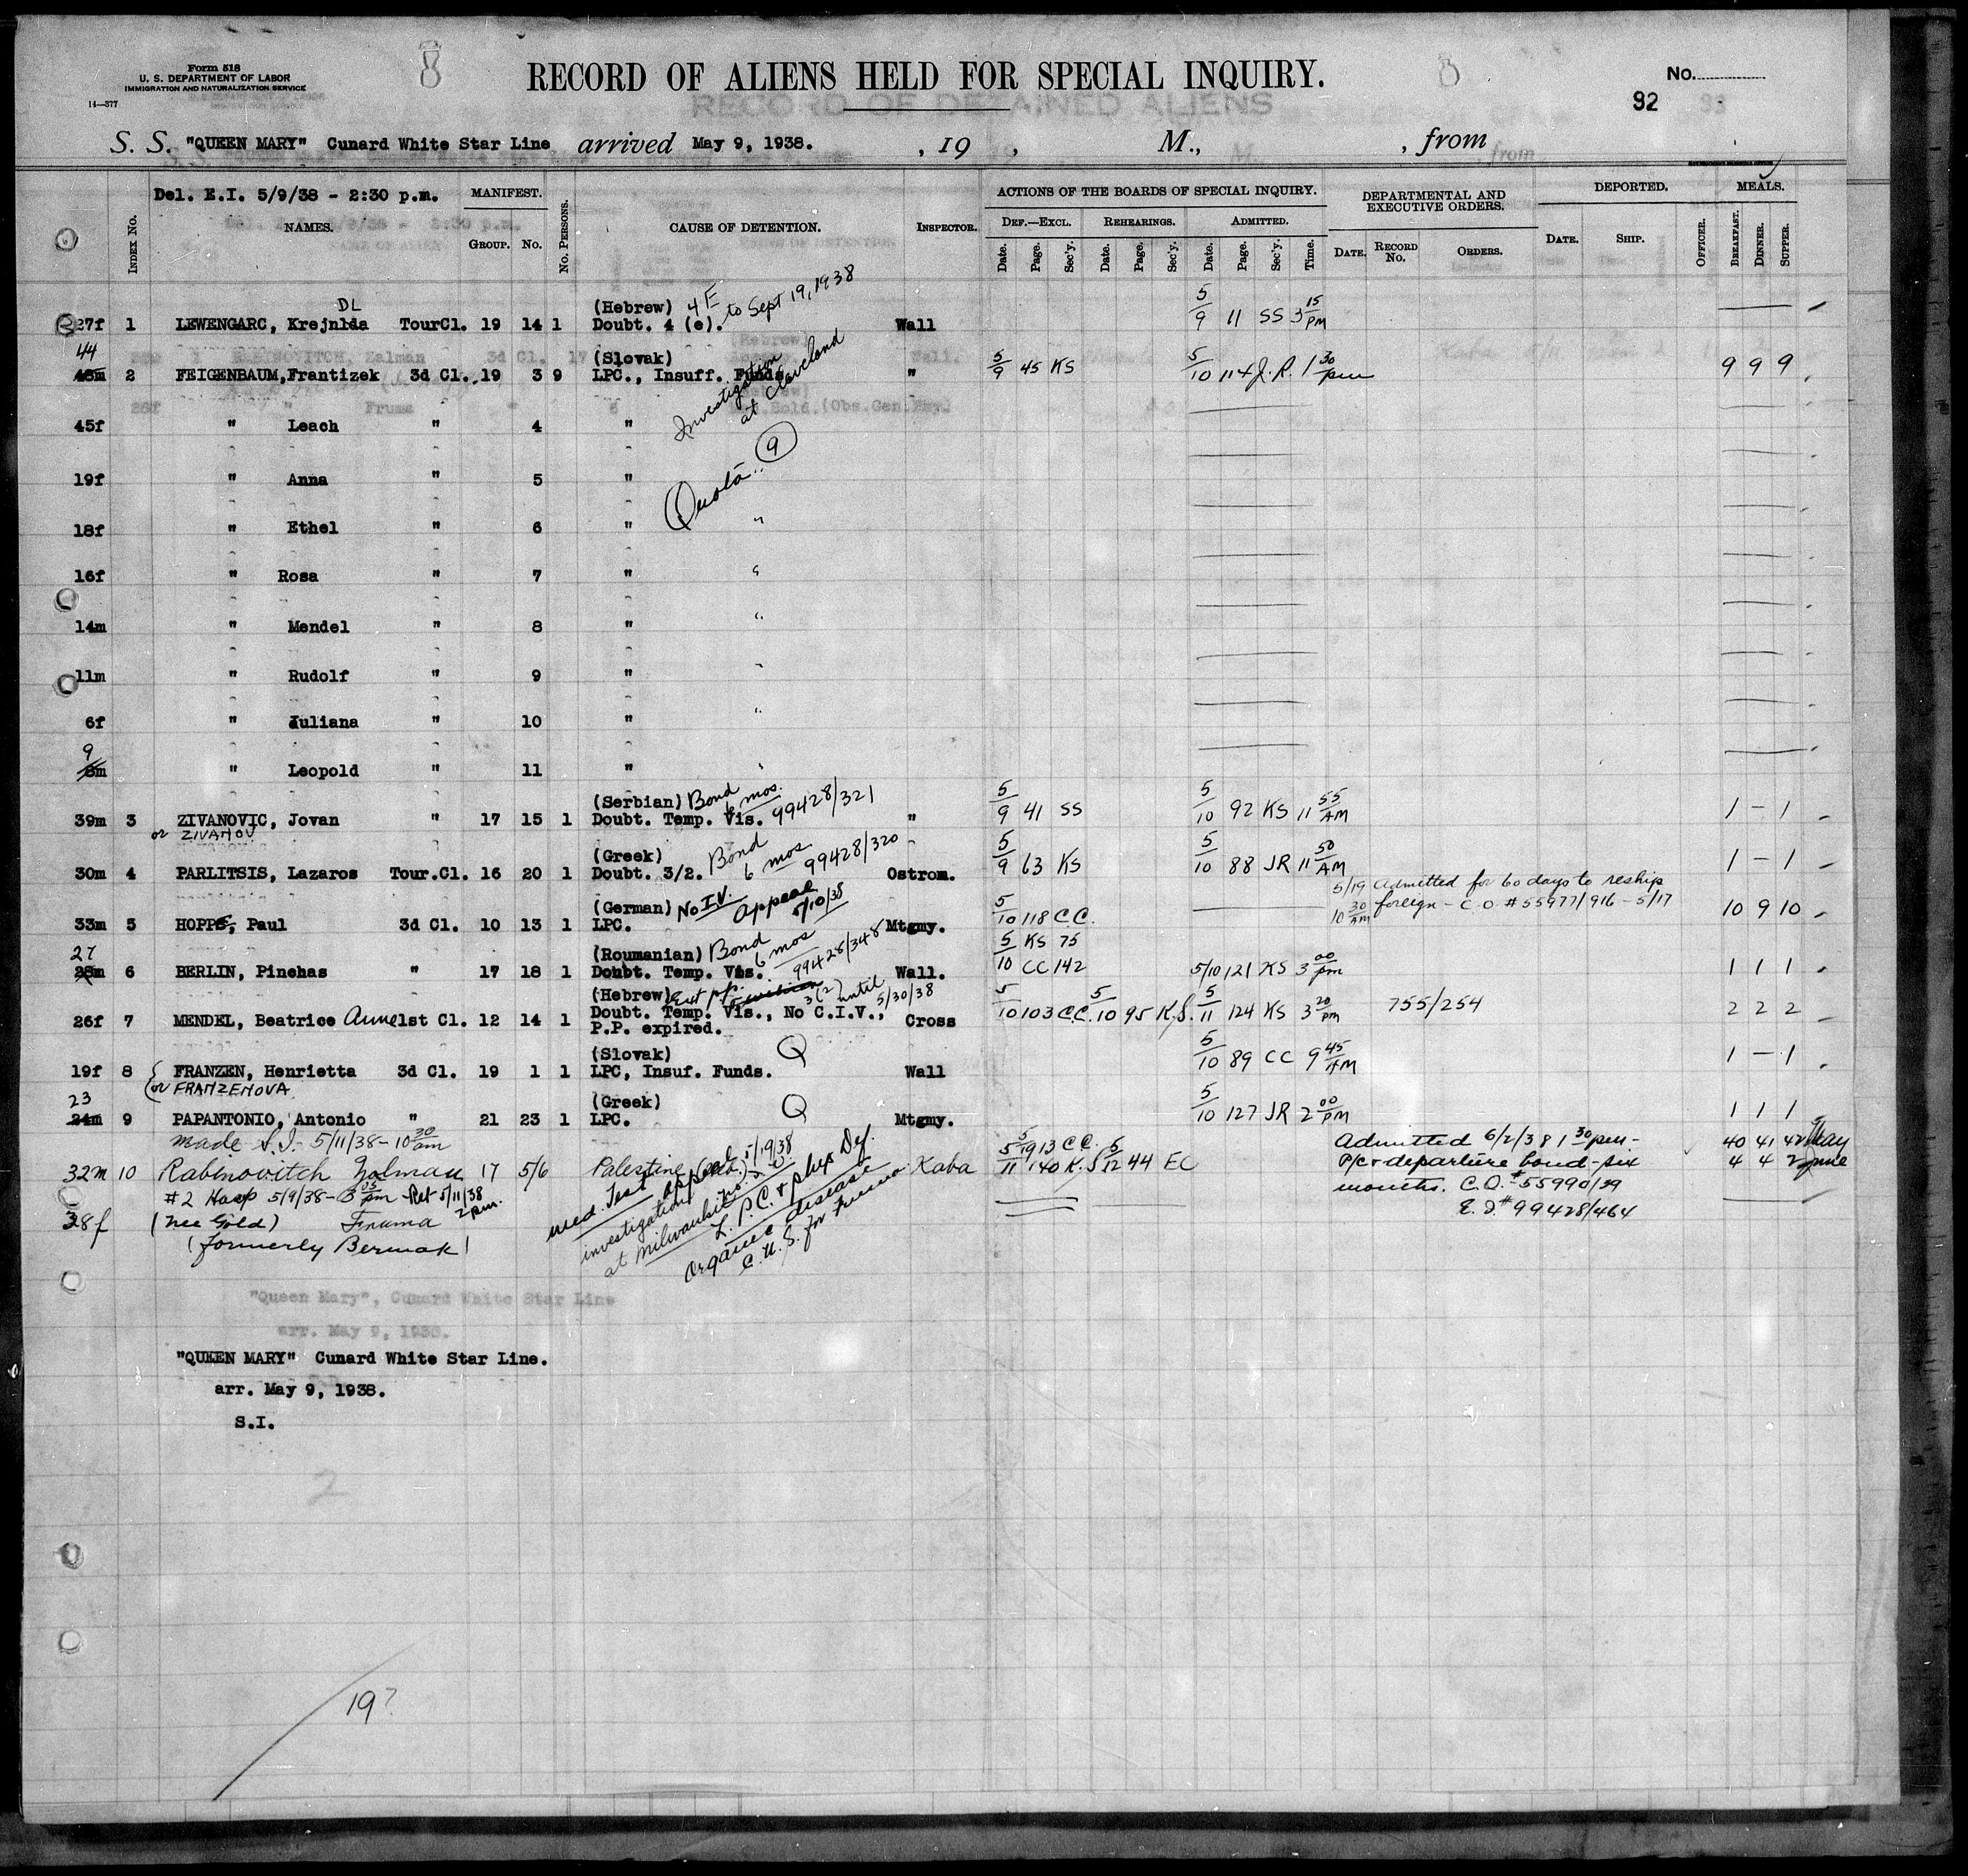 Form 518
U. S. DEPARTMENT OF LABOR
IMMIGRATION AND NATURALIZATION SERVICE
14—377
8
RECORD OF ALIENS HELD FOR SPECIAL INQUIRY.
RECORD OF DETAINED ALIENS
No.
92 93
S. S. "QUEEN MARY" Cunard White Star Line arrived May 9, 1938. , 19 , M., , from
Del. E.I. 5/9/38 - 2:30 p.m. MANIFEST. ACTIONS OF THE BOARDS OF SPECIAL INQUIRY. DEPARTMENTAL AND EXECUTIVE ORDERS. DEPORTED. MEALS.
INDEX No. NAMES. GROUP. No. No. PERSONS. CAUSE OF DETENTION. INSPECTOR. DEF.—EXCL. REHEARINGS. ADMITTED.
Date. Page. Sec'y. Date. Page. Sec'y. Date. Page. Sec'y. Time. DATE. RECORD No. ORDERS. DATE. SHIP. OFFICER. BREAKFAST. DINNER. SUPPER.
DL (Hebrew) 4E to Sept 19, 1938
27f 1 LEWENGARC, Krejnlda TourCl. 19 14 1 Doubt. 4 (e). Wall 5/9 11 SS 3 15 PM
44 (Slovak) Investigation at Cleveland
45m 2 FEIGENBAUM, Frantizek 3d Cl. 19 3 9 LPC., Insuff. Funds " 5/9 45 KS 5/10 114 J.R. 1 30 pm 9 9 9
45f " Leach " 4 "
Quota 9
19f " Anna " 5 "
18f " Ethel " 6 " "
16f " Rosa " 7 " "
14m " Mendel " 8 " "
11m " Rudolf " 9 " "
6f " Juliana " 10 " "
9
8m " Leopold " 11 " "
(Serbian) Bond 6 mos. 99428/321
39m 3 ZIVANOVIC, Jovan " 17 15 1 Doubt. Temp. Vis. " 5/9 41 SS 5/10 92 KS 11 55 AM 1 - 1
or ZIVANOV
(Greek) Bond 6 mos 99428/320
30m 4 PARLITSIS, Lazaros Tour.Cl. 16 20 1 Doubt. 3/2. Ostrom. 5/9 63 KS 5/10 88 JR 11 50 AM 1 - 1
(German) No I.V. Appeal 5/10/38 5/19 Admitted for 60 days to reship
33m 5 HOPPE, Paul 3d Cl. 10 13 1 LPC. Mtgmy. 5/10 118 C C. 10 30 AM foreign - C.O. #55977/916 - 5/17 10 9 10
27 (Roumanian) Bond 6 mos 99428/348 5/10 KS 75
28m 6 BERLIN, Pinehas " 17 18 1 Doubt. Temp. Vis. Wall. CC 142 5/10 121 KS 3 00 pm 1 1 1
(Hebrew) Ext pp. 3(2) until 5/30/38
26f 7 MENDEL, Beatrice Anne 1st Cl. 12 14 1 Doubt. Temp. Vis., No C.I.V., Cross 5/10 103 C.C. 5/10 95 K.S. 5/11 124 KS 3 20 pm 755/254 2 2 2
P.P. expired.
(Slovak) Q
19f 8 FRANZEN, Henrietta 3d Cl. 19 1 1 LPC, Insuf. Funds. Wall 5/10 89 CC 9 45 AM 1 - 1
(or FRANZENOVA
23 (Greek) Q
24m 9 PAPANTONIO, Antonio " 21 23 1 LPC. Mtgmy. 5/10 127 JR 2 00 PM 1 1 1
made S.I. 5/11/38 - 10 30 am Admitted 6/2/38 1 30 pm - 40 41 42 May
32m 10 Rabinovitch Zalman 17 5/6 Palestine Kaba 5/19 13 C.C. 5/11 140 K.S 5/12 44 EC P/c + departure bond - six 4 4 2 June
#2 Hosp 5/9/38 - 3 05 pm Ret 5/11/38 2 pm. months. C.O. #55990/29
38f (nee Gold) Fruma E.I. #99428/464
(formerly Bermak)
med. Test appeal 5/19/38
investigation at Milwaukee
L.P.C. + phys Def.
organic disease
for Fruma
"Queen Mary", Cunard White Star Line
arr. May 9, 1938.
"QUEEN MARY" Cunard White Star Line.
arr. May 9, 1938.
S.I.
2
19?